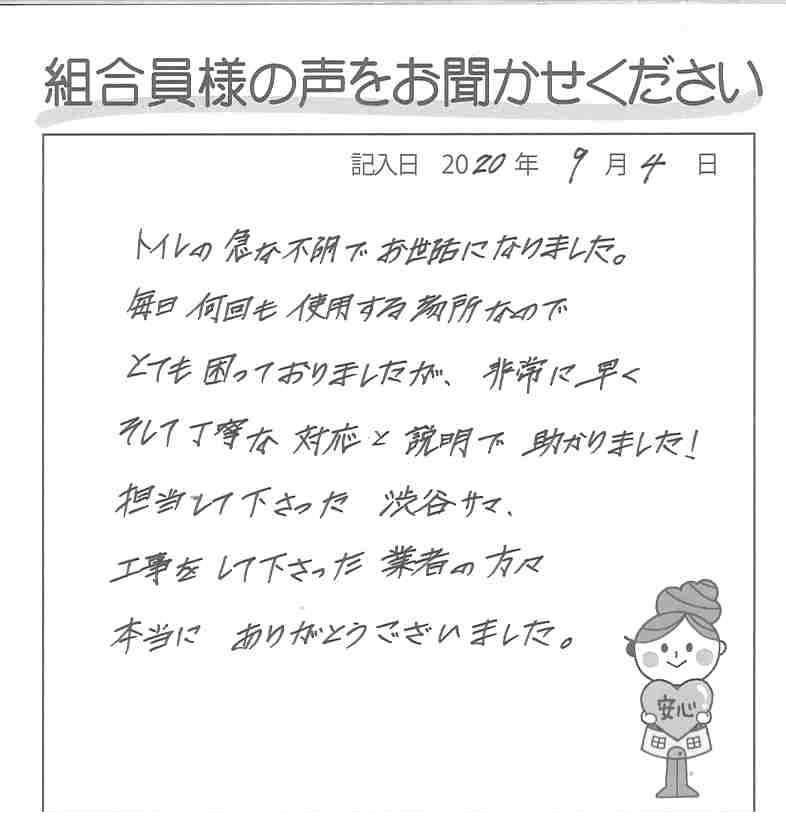 組合員様の声をお聞かせください
記入日 2020年 9月4日
トイレの急な不明でお世話になりました。
毎日何回も使用する箇所なので
とても困っておりましたが、非常に早く
そして丁寧な対応と説明で助かりました!
担当して下さった 渋谷サマ、
工事をして下さった業者の方々
本当に ありがとうございました。
安心